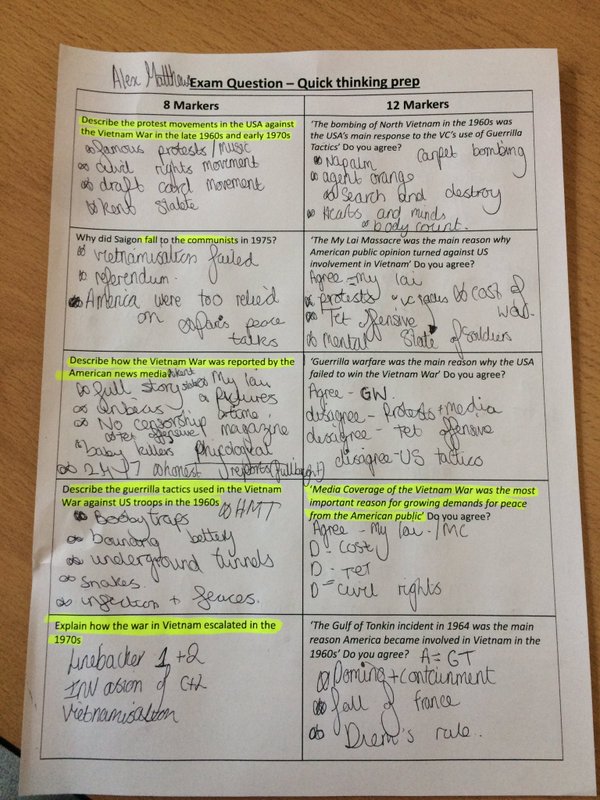 Alex Matthews
Exam Question – Quick thinking prep
8 Markers
Describe the protest movements in the USA against
the Vietnam War in the late 1960s and early 1970s
famous protests/music
civil rights movement
draft card movement
Kent State
12 Markers
'The bombing of North Vietnam in the 1960s was
the USA's main response to the VC's use of Guerrilla
Tactics' Do you agree?
Napalm carpet bombing
agent orange
Search and destroy
Hearts and minds
body count.
Why did Saigon fall to the communists in 1975?
Vietnamisation failed
referendum.
America were too relied
on Paris peace
talks
'The My Lai Massacre was the main reason why
American public opinion turned against US
involvement in Vietnam' Do you agree?
Agree = My lai
protests VC cost of
war
Tet offensive
mental State of soldiers
Describe how the Vietnam War was reported by the
American news media
full story My lai
pictures
No censorship
tet offensive magazine
baby killers
24/7 honest reports (fullbright)
'Guerrilla warfare was the main reason why the USA
failed to win the Vietnam War' Do you agree?
Agree - GW
disagree - Protests + media
disagree - Tet offensive
disagree - US tactics
Describe the guerrilla tactics used in the Vietnam
War against US troops in the 1960s
HMT
Booby traps
bouncing betty
underground tunnels
snakes.
infection + feaces.
'Media Coverage of the Vietnam War was the most
important reason for growing demands for peace
from the American public' Do you agree?
Agree - My lai - /MC
D - cost
D - TET
D = civil rights
Explain how the war in Vietnam escalated in the
1970s
Linebacker 1 + 2
INVasion of C+L
Vietnamisation
'The Gulf of Tonkin incident in 1964 was the main
reason America became involved in Vietnam in the
1960s' Do you agree? A = GT
Domino + containment
fall of france
Diem's rule.